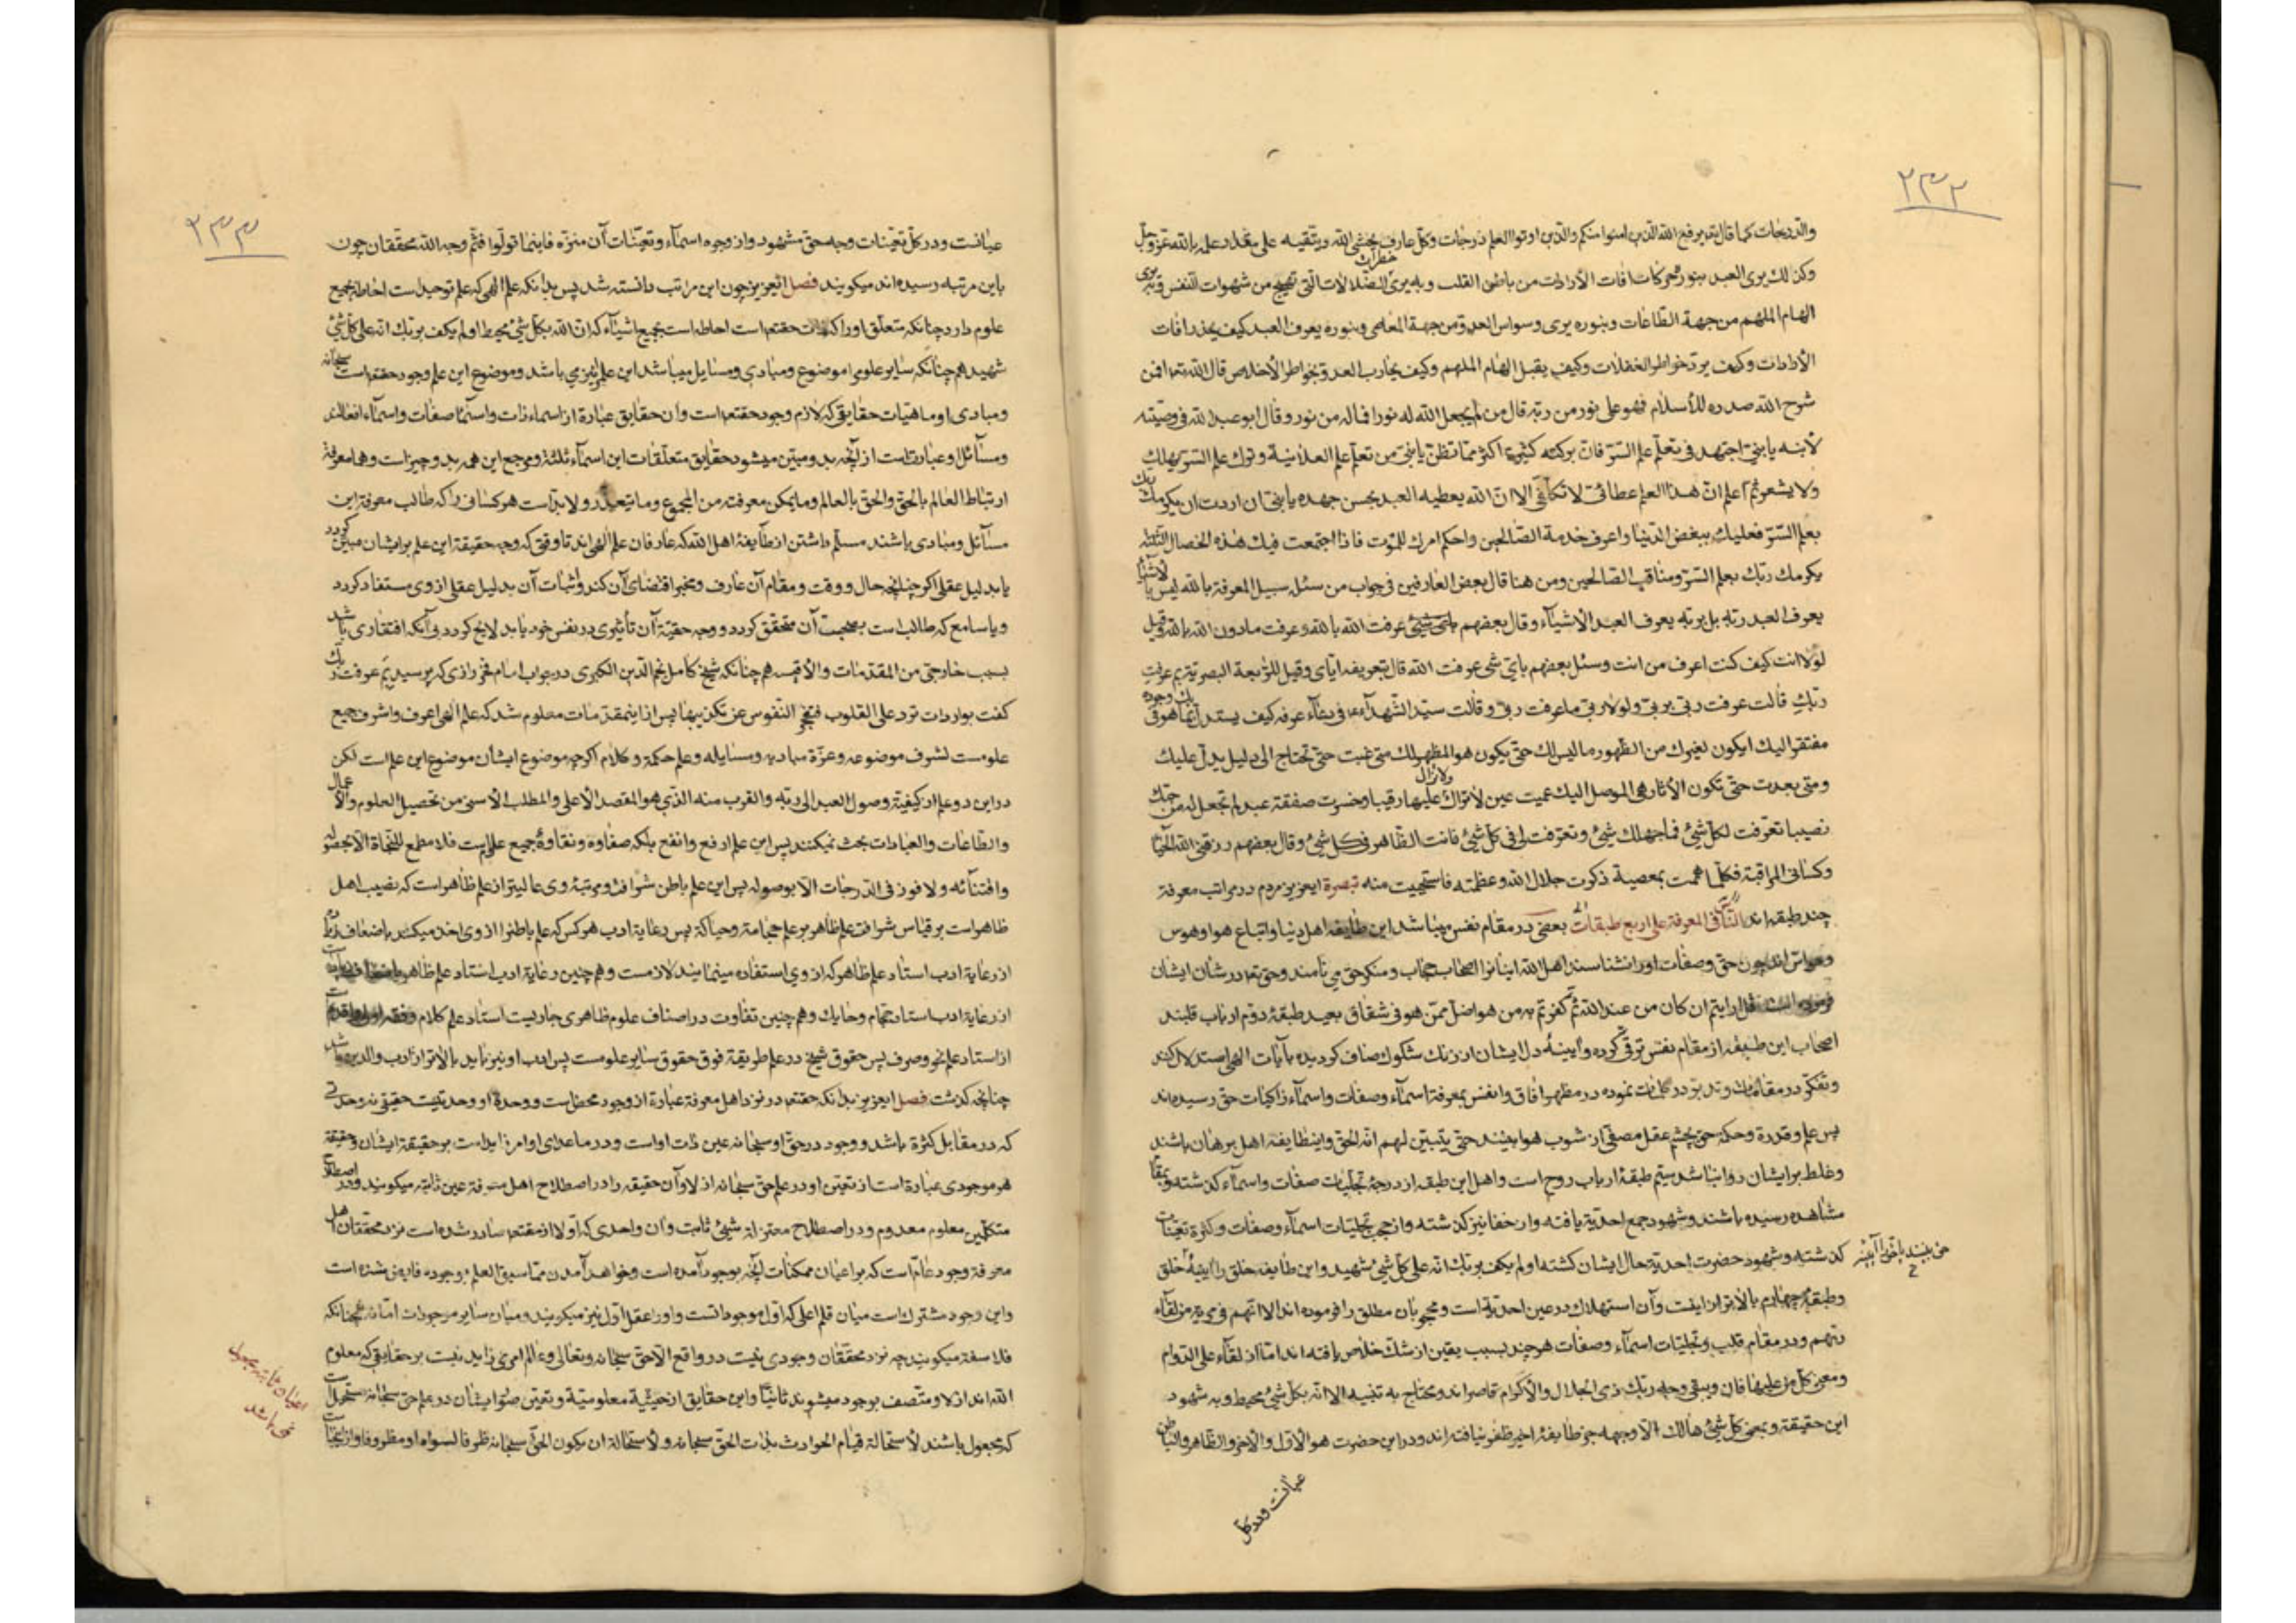 ۲۳۲
والدرجات كما قال تعالى يرفع الله الذين امنوا منكم والذين اوتوا العلم درجات وكل عارف يخشى الله ويتقيه على مقدار علمه بالله عز وجل
وكذلك يرى العبد بنوره حركات افات الارادات من باطن القلب وبه يرى خطرات الضلالات التى تهيج من شهوات النفس وبه يرى
الهام الملهم من جهة الطاعات وبنوره يرى وسواس العدو من جهة المعاصى وبنوره يعرف العبد كيف يحذر افات
الارادات وكيف يرد خواطر الغفلات وكيف يقبل الهام الملهم وكيف يحارب العدو بخواطر الاخلاص قال الله تعا افمن
شرح الله صدره للأسلام فهو على نور من ربه قال من لم يجعل الله له نورا فماله من نور وقال ابو عبد الله فى وصيته
لابنه يا بنى اجتهد فى تعلم علم السر فان بركته كثيرة اكثر مما تظن يا بنى من تعلم علم العلانية وترك علم السر يهلك
ولا يشعر ثم اعلم ان هذا العلم عطائى لا تكلفى الا ان الله يعطيه العبد بحسن جهده يا بنى ان اردت ان يكرمك ربك
بعلم السر فعليك ببغض الدنيا واعرف خدمة الصالحين واحكم امرك للموت فاذا اجتمعت فيك هذه الخصال الثلثه
يكرمك ربك بعلم السر ومناقب الصالحين ومن هنا قال بعض العارفين فى جواب من سئل سبيل المعرفة بالله ليس بالاشياء
يعرف العبد ربه بل بربه يعرف العبد الأشيآء وقال بعضهم عرفت الله بالله وعرفت مادون الله بالله وقيل
لولا انت كيف كنت اعرف من انت وسئل بعضهم باى شى عرفت الله قال بتعريفه اياى وقيل للرابعة البصرية بم عرفت
ربك قالت عرفت ربى بربى ولولا ربى ما عرفت ربى وقالت سيد الشهدآء فى دعآء عرفه كيف يستدل عليك بما هو فى وجوده
مفتقر اليك ايكون لغيرك من الظهور ما ليس لك حتى يكون هو المظهر لك متى غبت حتى تحتاج الى دليل يدل عليك
ومتى بعدت حتى تكون الأثار هى الموصل اليك عميت عين لا تراك ولا تزال عليها رقيبا وخسرت صفقة عبد لم تجعل له من حبك
نصيبا تعرفت لكل شئ فما جهلك شئ وتعرفت لى فى كل شئ فانت الظاهر فى كل شئ وقال بعضهم رزقنى الله الحيا
وكسانى المراقبة فكلما هممت بمعصية ذكرت جلال الله وعظمته فاستحييت منه تبصرة ايعزيز مردم در مراتب معرفة
چند طبقه اند الناس فى المعرفة على اربع طبقات بعضى در مقام نفس ميباشد اين طايفه اهل دنيا واتباع هوا وهوس
وحواس اند چون حق وصفات اورا نشناسند اهل الله اينانرا اصحاب حجاب ومنكر حق مى نامند وحق تعا در شان ايشان
فرموده است قل ارايتم ان كان من عند الله ثم كفرتم به من هو اضل ممن هو فى شقاق بعيد طبقهٔ دوم ارباب قلبند
اصحاب اين طبقه از مقام نفس ترقى كرده وآيينهٔ دل ايشان از زنك شكوك صاف كرديده بآيات الهى استدلال كنند
وتفكر در مقدمات وتدبر در نموده در مظهر افاق وانفس بمعرفة اسمآء وصفات واسمآء زاكيات حق رسيده اند
پس علم وقدرة وحكمة حق بچشم عقل مصفى از شوب هوا بينند حتى يتبين لهم انه الحق واينطايفه اهل برهان باشند
وغلط بر ايشان روا نباشد سيم طبقهٔ ارباب روح است واهل اين طبقه از درجهٔ تجليات صفات واسمآء كذشته وبمقام
مشاهده رسيده باشند وشهود جمع احدية يافته واز خفا نيز كذشته واز حجب تجليات اسمآء وصفات وكثرة تعينات
كذشته وشهود حضرت احدية حال ايشان كشته اولم يكف بربك انه على كل شئ شهيد واين طايفه خلق را آيينهٔ خلق
حق بينند يا حق را آيينه
وطبقهٔ چهارم بالاتر از اينست وآن استهلاك در عين احدية است ومحجوبان مطلق را فرموده اند الا انهم فى مرية من لقآء
ربهم ودر مقام قلب وتجليات اسمآء وصفات هر چند بسبب يقين از شك خلاص يافته اند اما از لقآء على الدوام
ومعنى كل من عليها فان ويبقى وجه ربك ذى الجلال والأكرام قاصر اند ومحتاج به تنبيه الا انه بكل شئ محيط وبه شهود
اين حقيقة وبمعنى كل شئ هالك الا وجهه جز طايفهٔ اخير ظفر نيافته اند ودر اين حضرت هو الاول والأخر والظاهر والباطن
عيانست ودر كل
۲۳۳
عيانست ودر كل تعينات وجه حق مشهود واز وجوه اسمآء وتعينات آن منزه فاينما تولوا فثم وجه الله محققان چون
باين مرتبه رسيده اند ميكويند فصل ايعزيز چون اين مراتب دانسته شد پس بدانكه علم الهى كه علم توحيد است احاطه بجميع
علوم دارد چنانكه متعلق اورا كه حقتعا است احاطه است بجميع اشيآء كه ان الله بكل شئ محيط اولم يكف بربك انه على كل شئ
شهيد هم چنانكه ساير علوم را موضوع ومبادى ومسايل ميباشد اين علم را نيز مى باشد وموضوع اين علم وجود حقتعا است سبحانه
ومبادى او ماهيات حقايقى كه لازم وجود حقتعا است وان حقايق عبارة از اسماء ذات واسمآء صفات واسمآء افعالند
ومسآئل او عبارتست از آنچه بدو مبين ميشود حقايق متعلقات اين اسمآء ثلثه ومرجع اين همه بدو چيز است وهما معرفة
ارتباط العالم بالحق والحق بالعالم وما يمكن معرفته من المجموع وما يتعذر ولابد است هر كسانى را كه طالب معرفة اين
مسآئل ومبادى باشند مسلم داشتن از طايفهٔ اهل الله كه عارفان علم الهى اند تا وقتى كه وجه حقيقة اين علم بر ايشان مبين كردد
يا بدليل عقلى اكر چنانچه حال ووقت ومقام آن عارف ومخبر اقتضاى آن كند واثبات آن بدليل عقلى از وى مستفاد كردد
ويا سامع كه طالب است بصحبت آن متحقق كردد ووجه حقية آن تأثيرى در نفس خود يابد لايح كردد بى آنكه افتقارى باشد
بسبب خارجى من المقدمات والأقيسه هم چنانكه شيخ كامل نجم الدين الكبرى در جواب امام فخر رازى كه پرسيد بم عرفت ربك
كفت بواردات ترد على القلوب فتعجز النفوس عن تكذيبها پس از اينمقدمات معلوم شد كه علم الهى اعرف واشرف جميع
علومست لشرف موضوعه وعزة مباديه ومسايله وعلم حكمة وكلام اكرچه موضوع ايشان موضوع اين علم است لكن
در اين دو علم از كيفية وصول العبد الى ربه والقرب منه الذى هو المقصد الأعلى والمطلب الأسنى من تحصيل العلوم والأعمال
والطاعات والعبادات بحث نميكنند پس اين علم ارفع وانفع بلكه صفاوه ونقاوهٔ جميع علمست فلا مطمع للنجاة الا بحصوله
واقتنآئه ولا فوز فى الدرجات الا بوصوله پس اين علم باطن شرافة ومرتبهٔ وى عاليتر از علم ظاهر است كه نصيب اهل
ظاهر است بر قياس شرافة علم ظاهر بر علم حجامة وحياكة پس رعاية ادب هر كس كه علم باطنرا از وى اخذ ميكند باضعاف زياده
از رعاية ادب استاد علم ظاهر كه از وى استفاده مينمايند لازمست وهم چنين رعاية ادب استاد علم ظاهر باضعاف زياده است
از رعاية ادب استاد حجام وحايك وهم چنين تفاوت در اصناف علوم ظاهرى جاريست استاد علم كلام وفقه
از استاد علم نحو وصرف پس حقوق شيخ در علم طريقة فوق حقوق ساير علومست پس ادب او نيز بايد بالاتر از ادب والدين باشد
چنانچه كذشت فصل ايعزيز بدانكه حقتعا در نزد اهل معرفة عبارة از وجود محض است ووحدة او وحدتيست حقيقى نه وحدتى
كه در مقابل كثرة باشد ووجود در حق او سبحانه عين ذات اوست ودر ما عداى او امر زايد است بر حقيقة ايشان وحقيقة
هر موجودى عبارة است از تعين او در علم حق سبحانه ازلا وآن حقيقه را در اصطلاح اهل معرفة عين ثابته ميكويند ودر اصطلاح
متكلمين معلوم معدوم ودر اصطلاح معتزله شيئ ثابت وان واحدى كه اولا از حقتعا صادر شده است نزد محققان اهل
معرفة وجود عام است كه بر اعيان ممكنات آنچه بوجود آمده است وخواهد آمدن مما سبق العلم بوجوده فايض شده است
واين وجود مشترك است ميان قلم اعلى كه اول موجود است واورا عقل اول نيز ميكويند وميان ساير موجودات اما نه همچنانكه
فلاسفه ميكويند چه نزد محققان وجودى نيست در واقع الا حق سبحانه وتعالى وعالم امرى زايد نيست بر حقايقى كه معلوم
الله اند ازلا ومتصف بوجود ميشوند ثانيا واين حقايق از حيثية معلومية وتعين صور ايشان در علم حق سبحانه مستحيل است
كه مجعول باشند لأستحالة قيام الحوادث بذات الحق سبحانه ولأستحالة ان يكون الحق سبحانه ظرفا لسواه او مظروفا واز اينجا
اعيان ثابته مجعول
نمى باشد